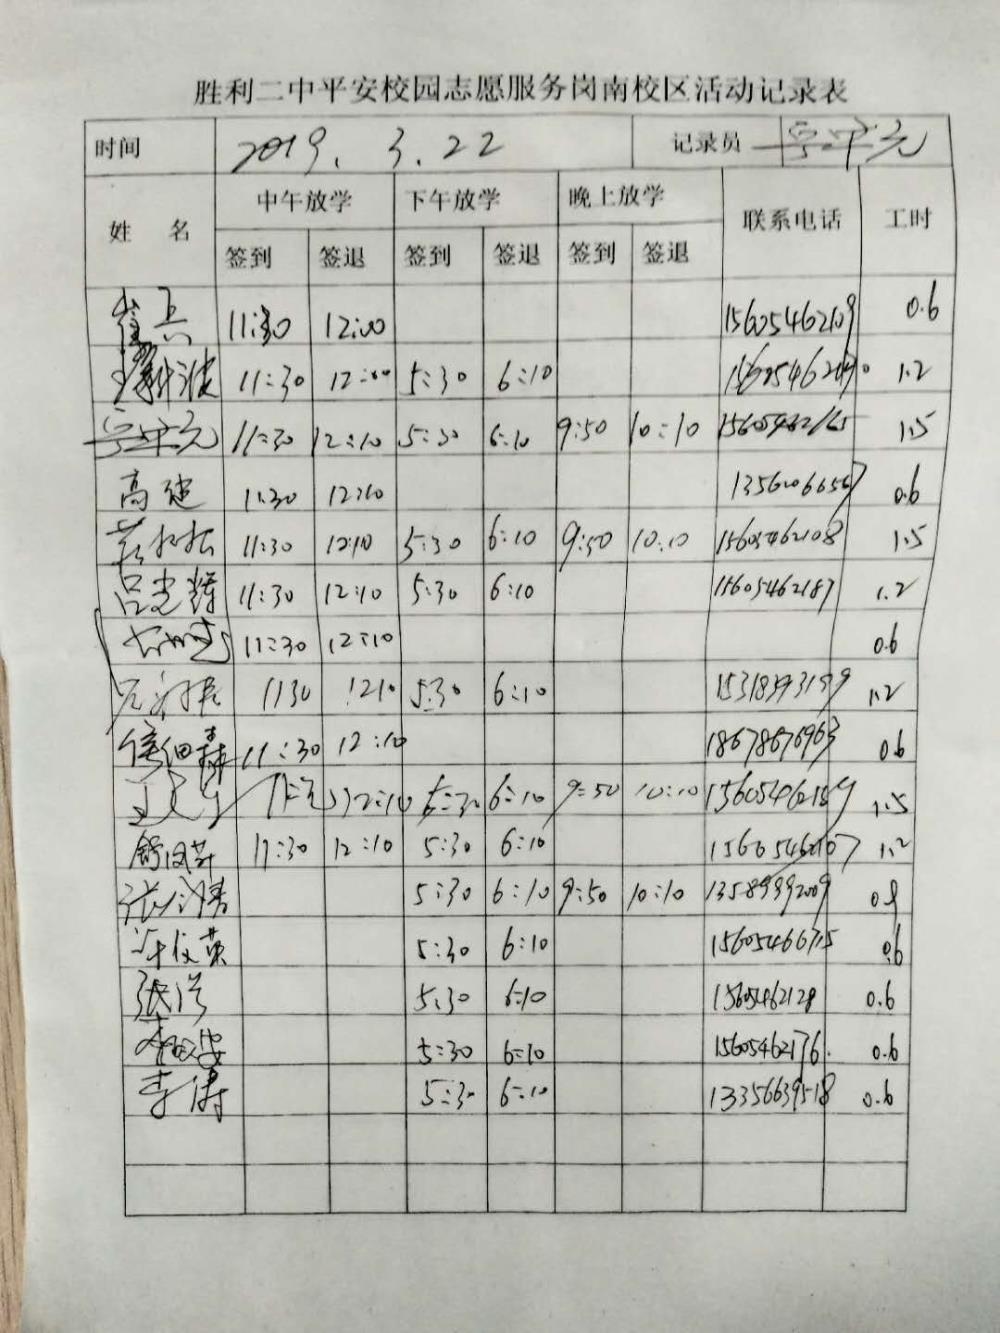 胜利二中平安校园志愿服务岗南校区活动记录表
时间 2019. 3. 22 记录员
姓 名 中午放学 下午放学 晚上放学 联系电话 工时
签到 签退 签到 签退 签到 签退
11:30 12:00 15605462109 0.6
11:30 12:00 5:30 6:10 1.2
11:30 12:10 5:30 6:10 9:50 10:10 15605462165 1.5
高建 11:30 12:10 0.6
11:30 12:10 5:30 6:10 9:50 10:10 15605462108 1.5
吕志辉 11:30 12:10 5:30 6:10 15605462187 1.2
11:30 12:10 0.6
1130 1210 5:30 6:10 15318393199 1.2
11:30 12:10 18678676963 0.6
12:10 5:30 6:10 9:50 10:10 1.5
11:30 12:10 5:30 6:10 15605462107 1.2
5:30 6:10 9:50 10:10 13589992009 0.9
5:30 6:10 15605466715 0.6
张洪 5:30 6:10 15605462128 0.6
5:30 6:10 15605462176. 0.6
李涛 5:30 6:10 13356639518 0.6